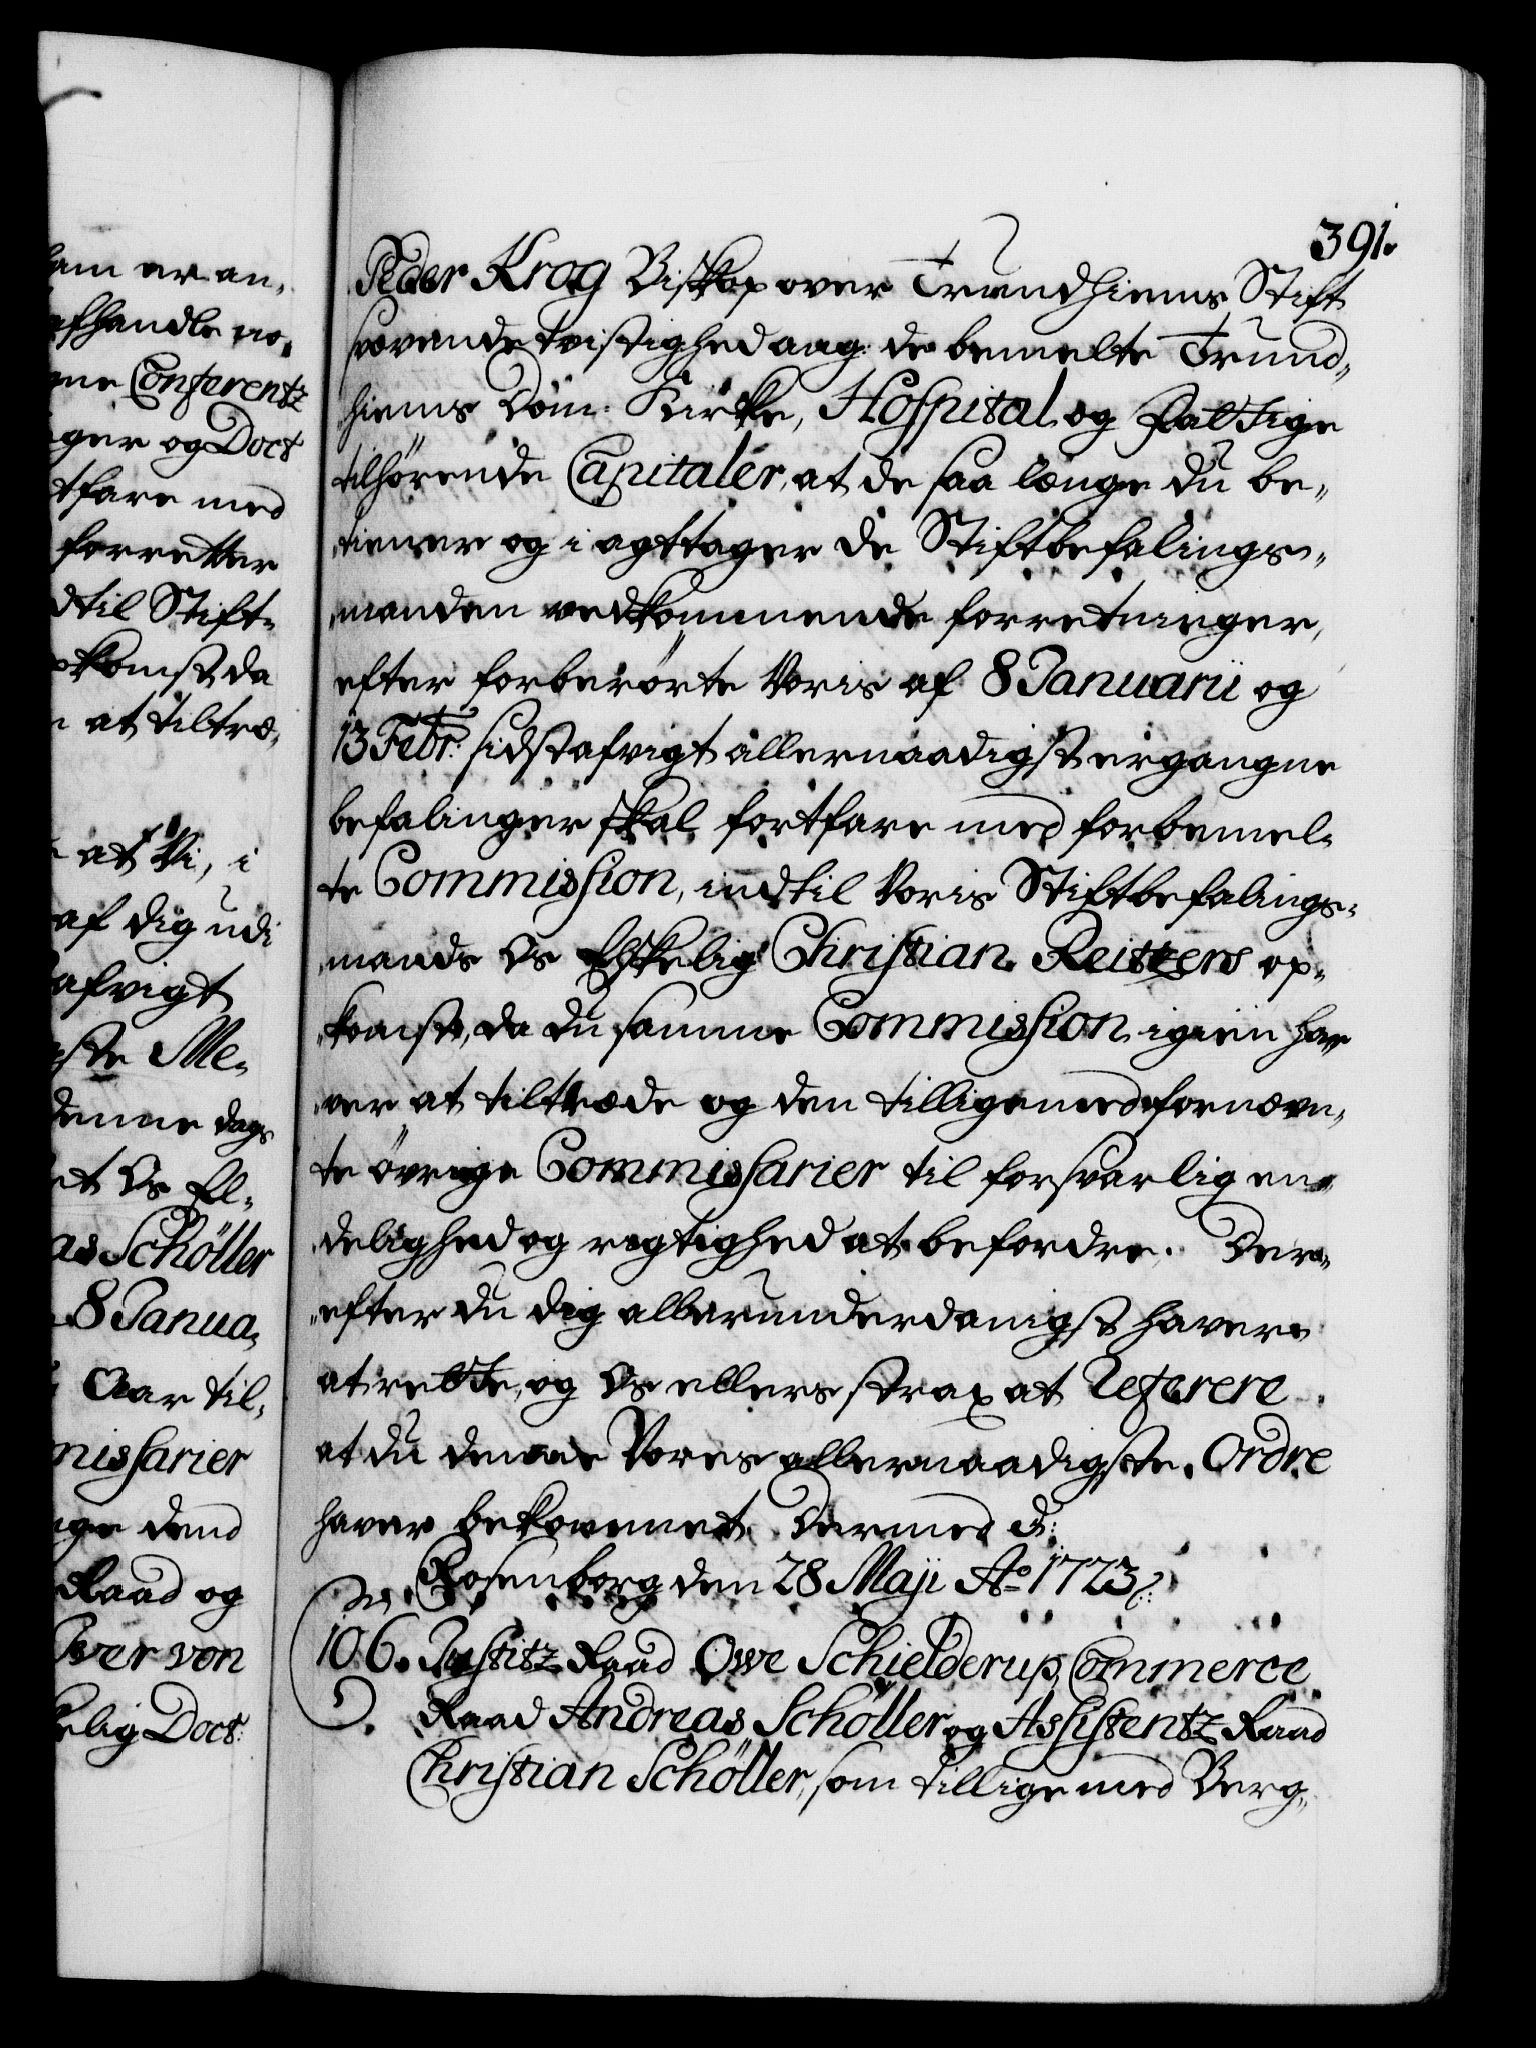 391.
Peder Krog Biskop over Trundhiems Stift
svævende tvistighed aag: de bemelte Trund-
hiems Dom: Kirke, Hospital og Fattige
tilhørende Capitaler, at de saa længe du be-
tiener og i agttager de Stiftbefalings-
manden vedkommende forretninger,
efter forberørte Voris af 8 Januarii og
13 Febr: sidst afvigt allernaadigst ergangne
befalinger skal fortfare med forbemel-
te Commission, indtil Voris Stiftbefalings-
mands Os Elskelig Christian Reitzers op-
komst, da du samme Commission igien ha-
ver at tiltræde og den tillige med fornævn-
te øvrige Commissarier til forsvarlig en-
delighed og rigtighed at befordre. Der-
efter du dig allerunderdanigst haver
at rette, og Os ellers strax at Referere
at du denne Vores allernaadigste Ordre
haver bekommet. Dermed &:
Rosenborg den 28 Maji Ao 1723.
106. Justitz Raad Owe Schielderup, Commerce
Raad Andreas Schøller og Assistentz Raad
Christian Schøller, som tillige med Berg-
am er an-
afhandle no-
gne Conferentz
ger og Doct
tfare med
forretter
dtil Stift-
komst, da
at tiltræ-
at Vi, i
af dig udi
afvigt
ste Me-
denne dags
et Os El-
as Schöller
8 Janua-
Aar til-
missarier
ige dend
Raad og
Iver von
kelig Doct: